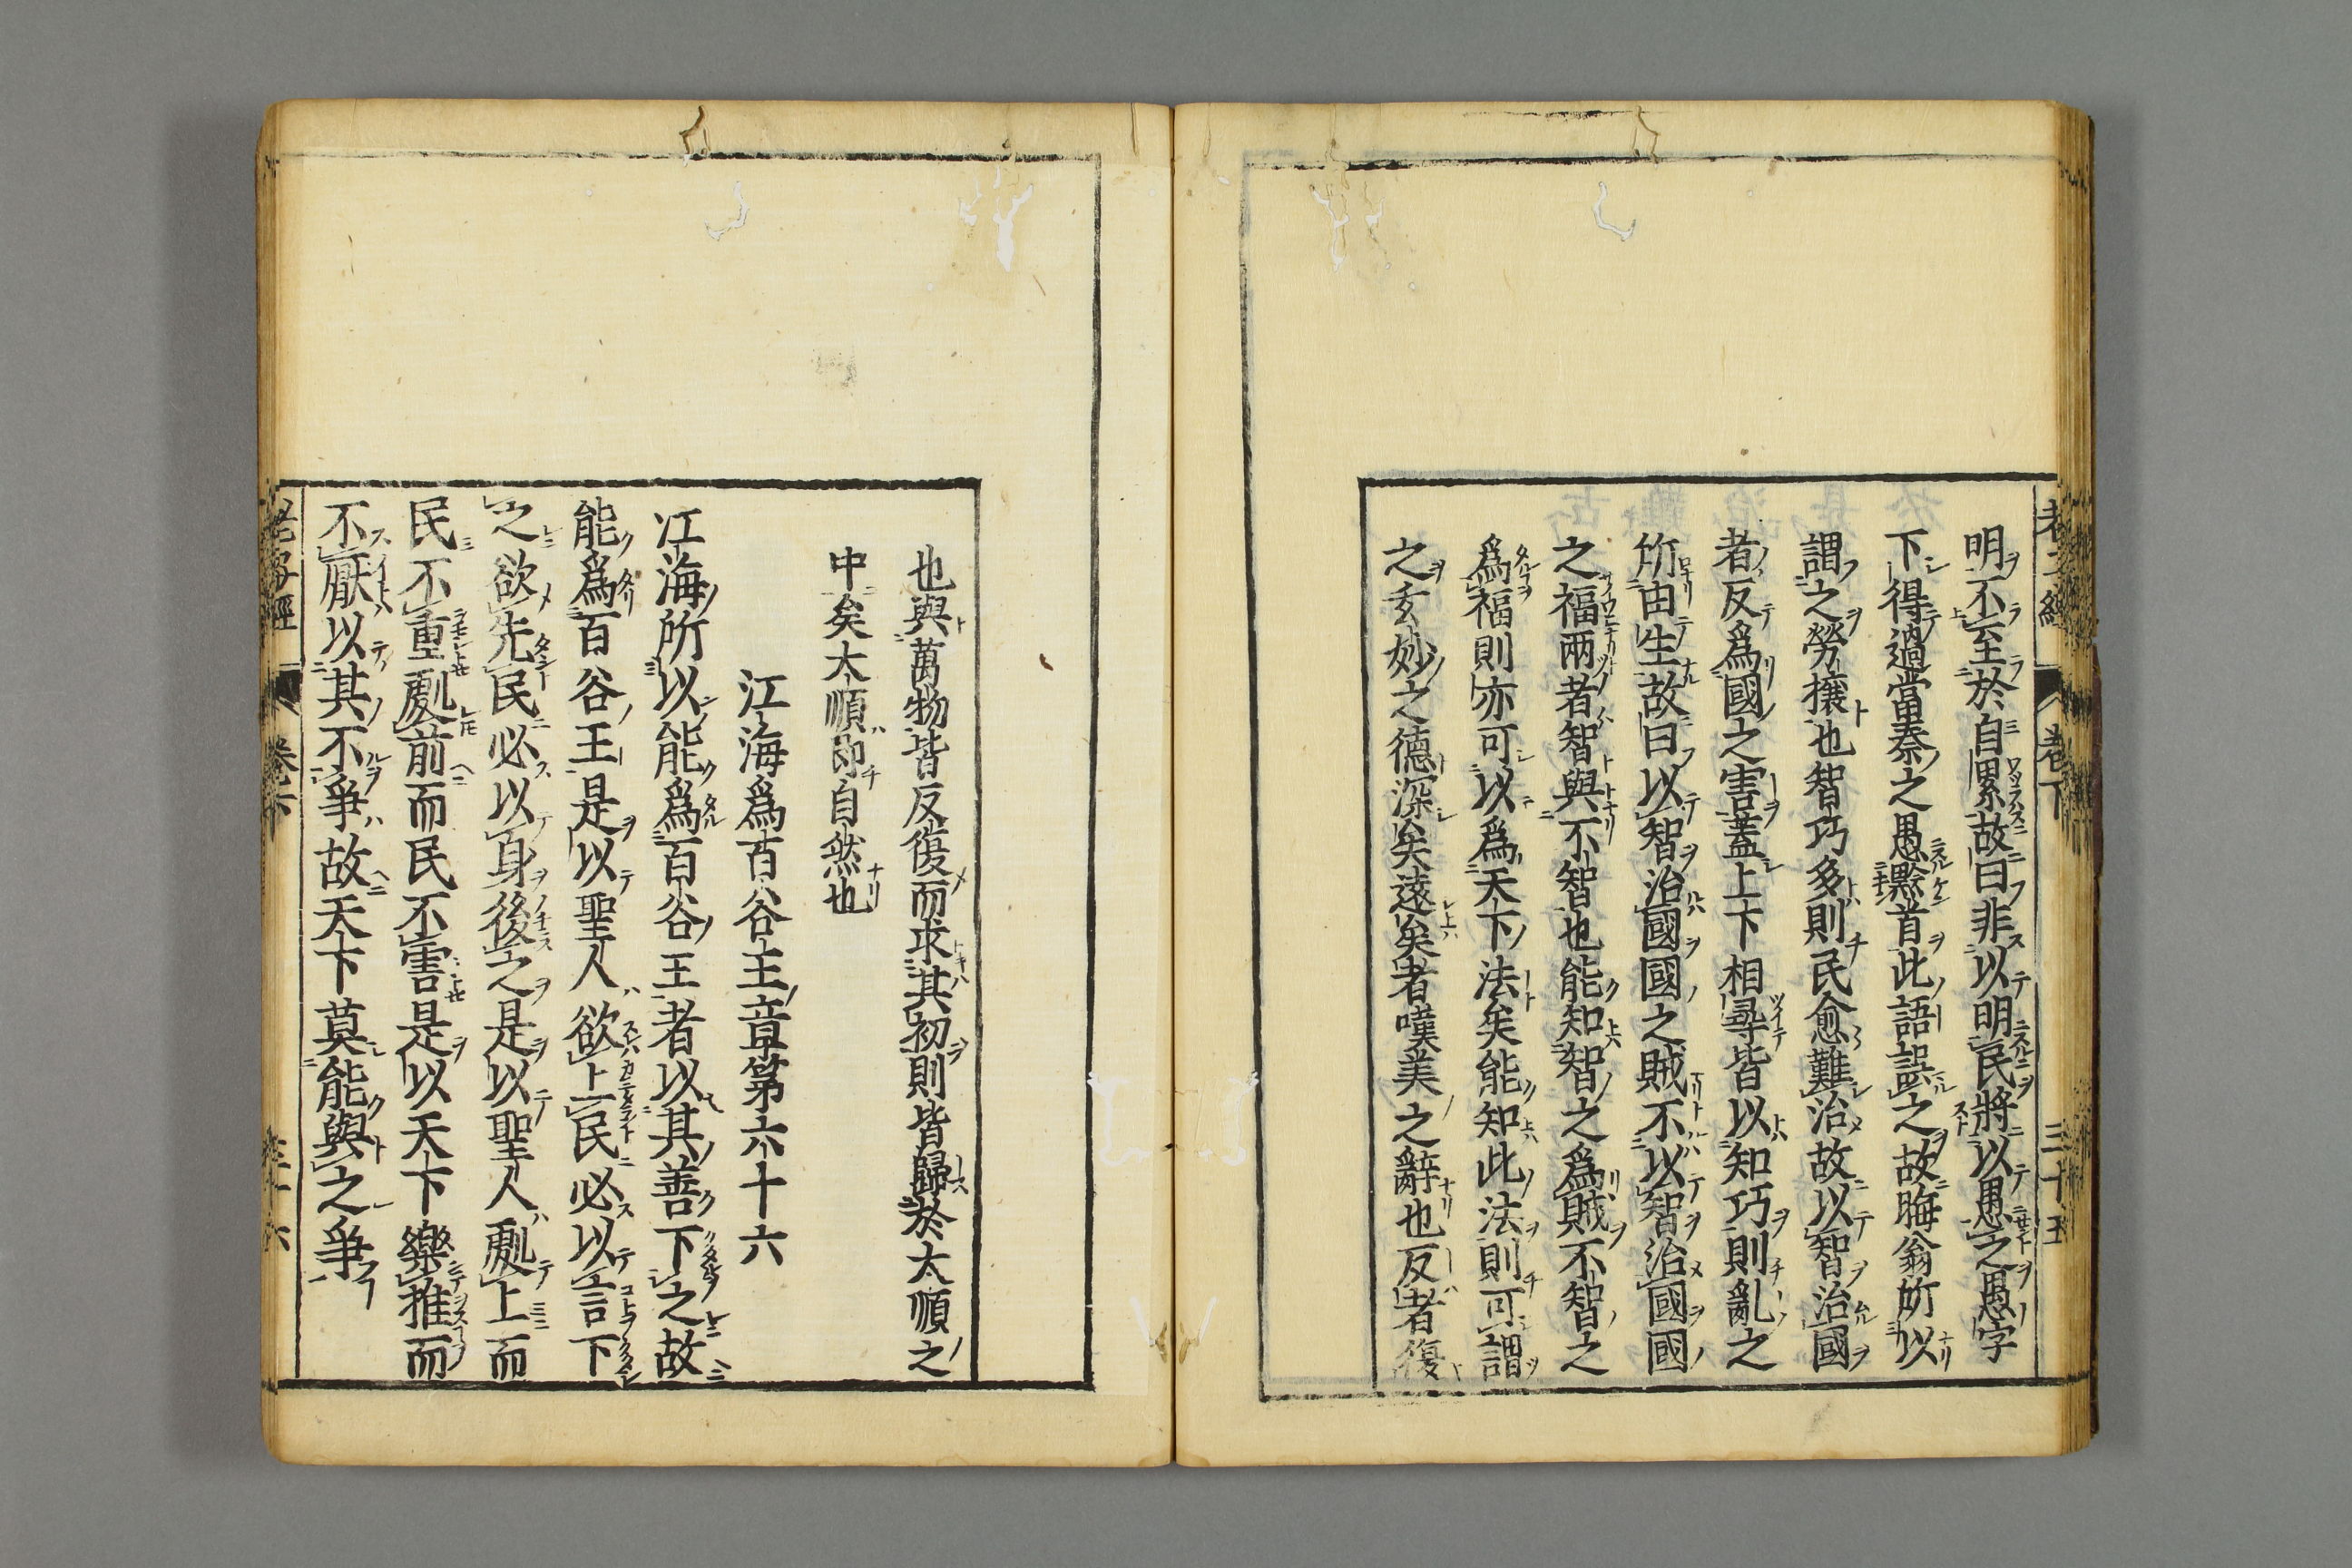 明不至於自累故曰非以明民將以愚之愚字
下得過當秦之愚黔首此語誤之故晦翁所以
謂之勞攘也智巧多則民愈難治故以智治國
者反爲國之害蓋上下相尋皆以知巧則亂之
所由生故曰以智治國國之賊不以智治國國
之福兩者智與不智也能知智之爲賊不智之
爲福則亦可以爲天下法矣能知此法則可謂
之玄妙之德深矣遠矣者嘆美之辭也反者復
也與萬物皆反復而求其初則皆歸於太順之
中矣太順即自然也
江海爲百谷王章第六十六
江海所以能爲百谷王者以其善下之故
能爲百谷王是以聖人欲上民必以言下
之欲先民必以身後之是以聖人處上而
民不重處前而民不害是以天下樂推而
不厭以其不爭故天下莫能與之爭